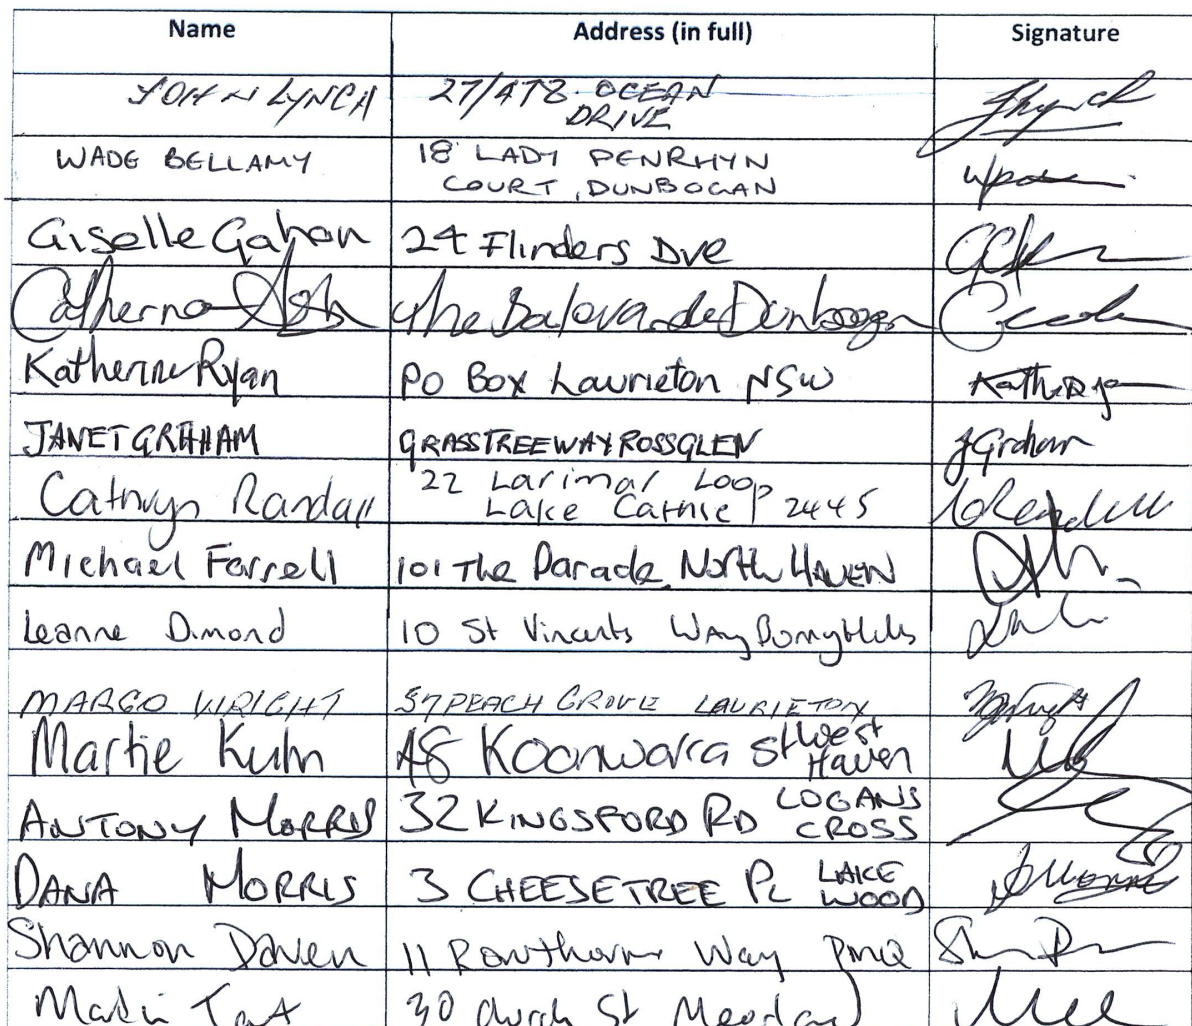 Name Address (in full) Signature
JOHN LYNCH 27/478 OCEAN
DRIVE
WADE BELLAMY 18 LADY PENRHYN
COURT, DUNBOGAN
Giselle Gahan 24 Flinders Dve
The Dunbogan
Katherine Ryan PO Box Laurieton NSW
JANET GRAHAM GRASSTREE WAY ROSSGLEN JGraham
Cathryn Randall 22 Larimar Loop
Lake Cathie 2445
Michael Farrell 101 The Parade North HAVEN
Leanne Dimond 10 St Vincents Way Bonny Hills
MARGO WRIGHT 57 PEACH GROVE LAURIETON
Martie Kuhn 48 Koonwarra St West
Haven
ANTONY MORRIS 32 KINGSFORD RD LOGANS
CROSS
DANA MORRIS 3 CHEESETREE PL LAKE
WOOD
Shannon 11 Way PMQ
30 St